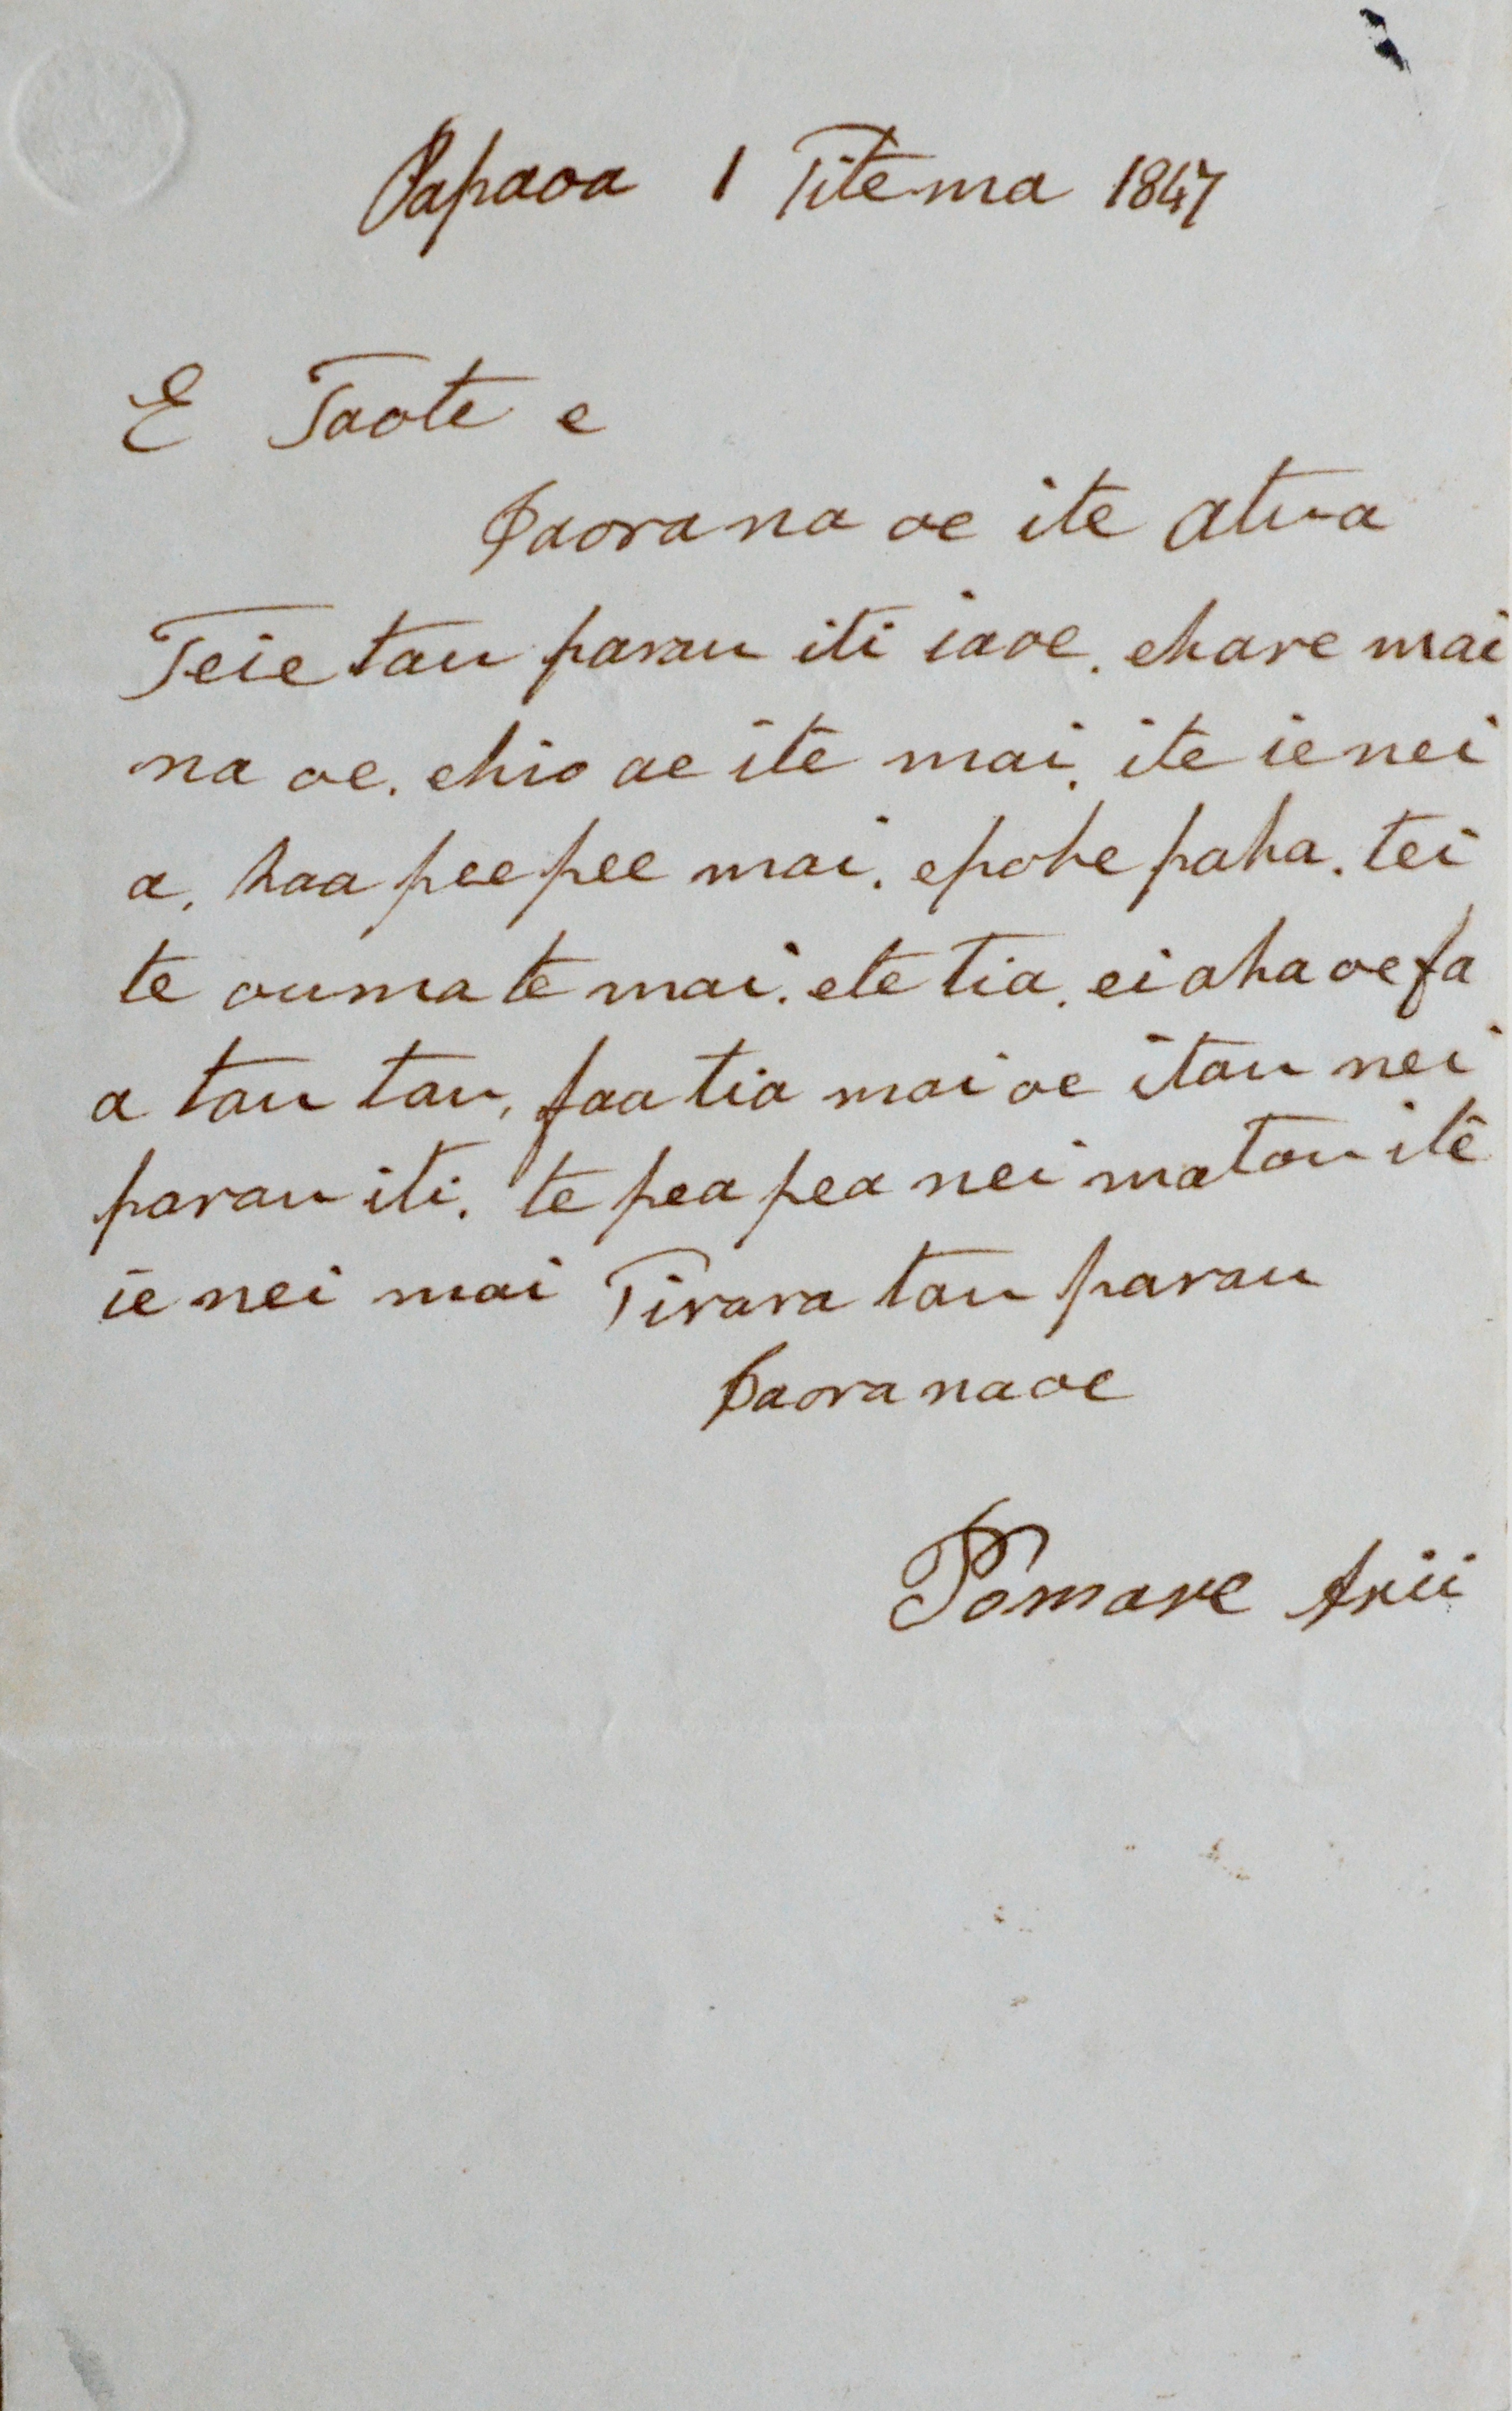 Papaoa 1 Titema 1847
E Taote e
Iaorana oe ite Atua
Teie tau parau iti iaoe. ehare mai
na oe. ehio ae ite mai. ite ienei
a. haa peepee mai. epohe paha. tei
te ouma te mai. ete tia. eiaha oe fa
a tau tau, faatia mai oe itau nei
parau iti. te peapea nei matou ite
ie nei mai Tirara tau parau
Iaora na oe
Pomare Arii